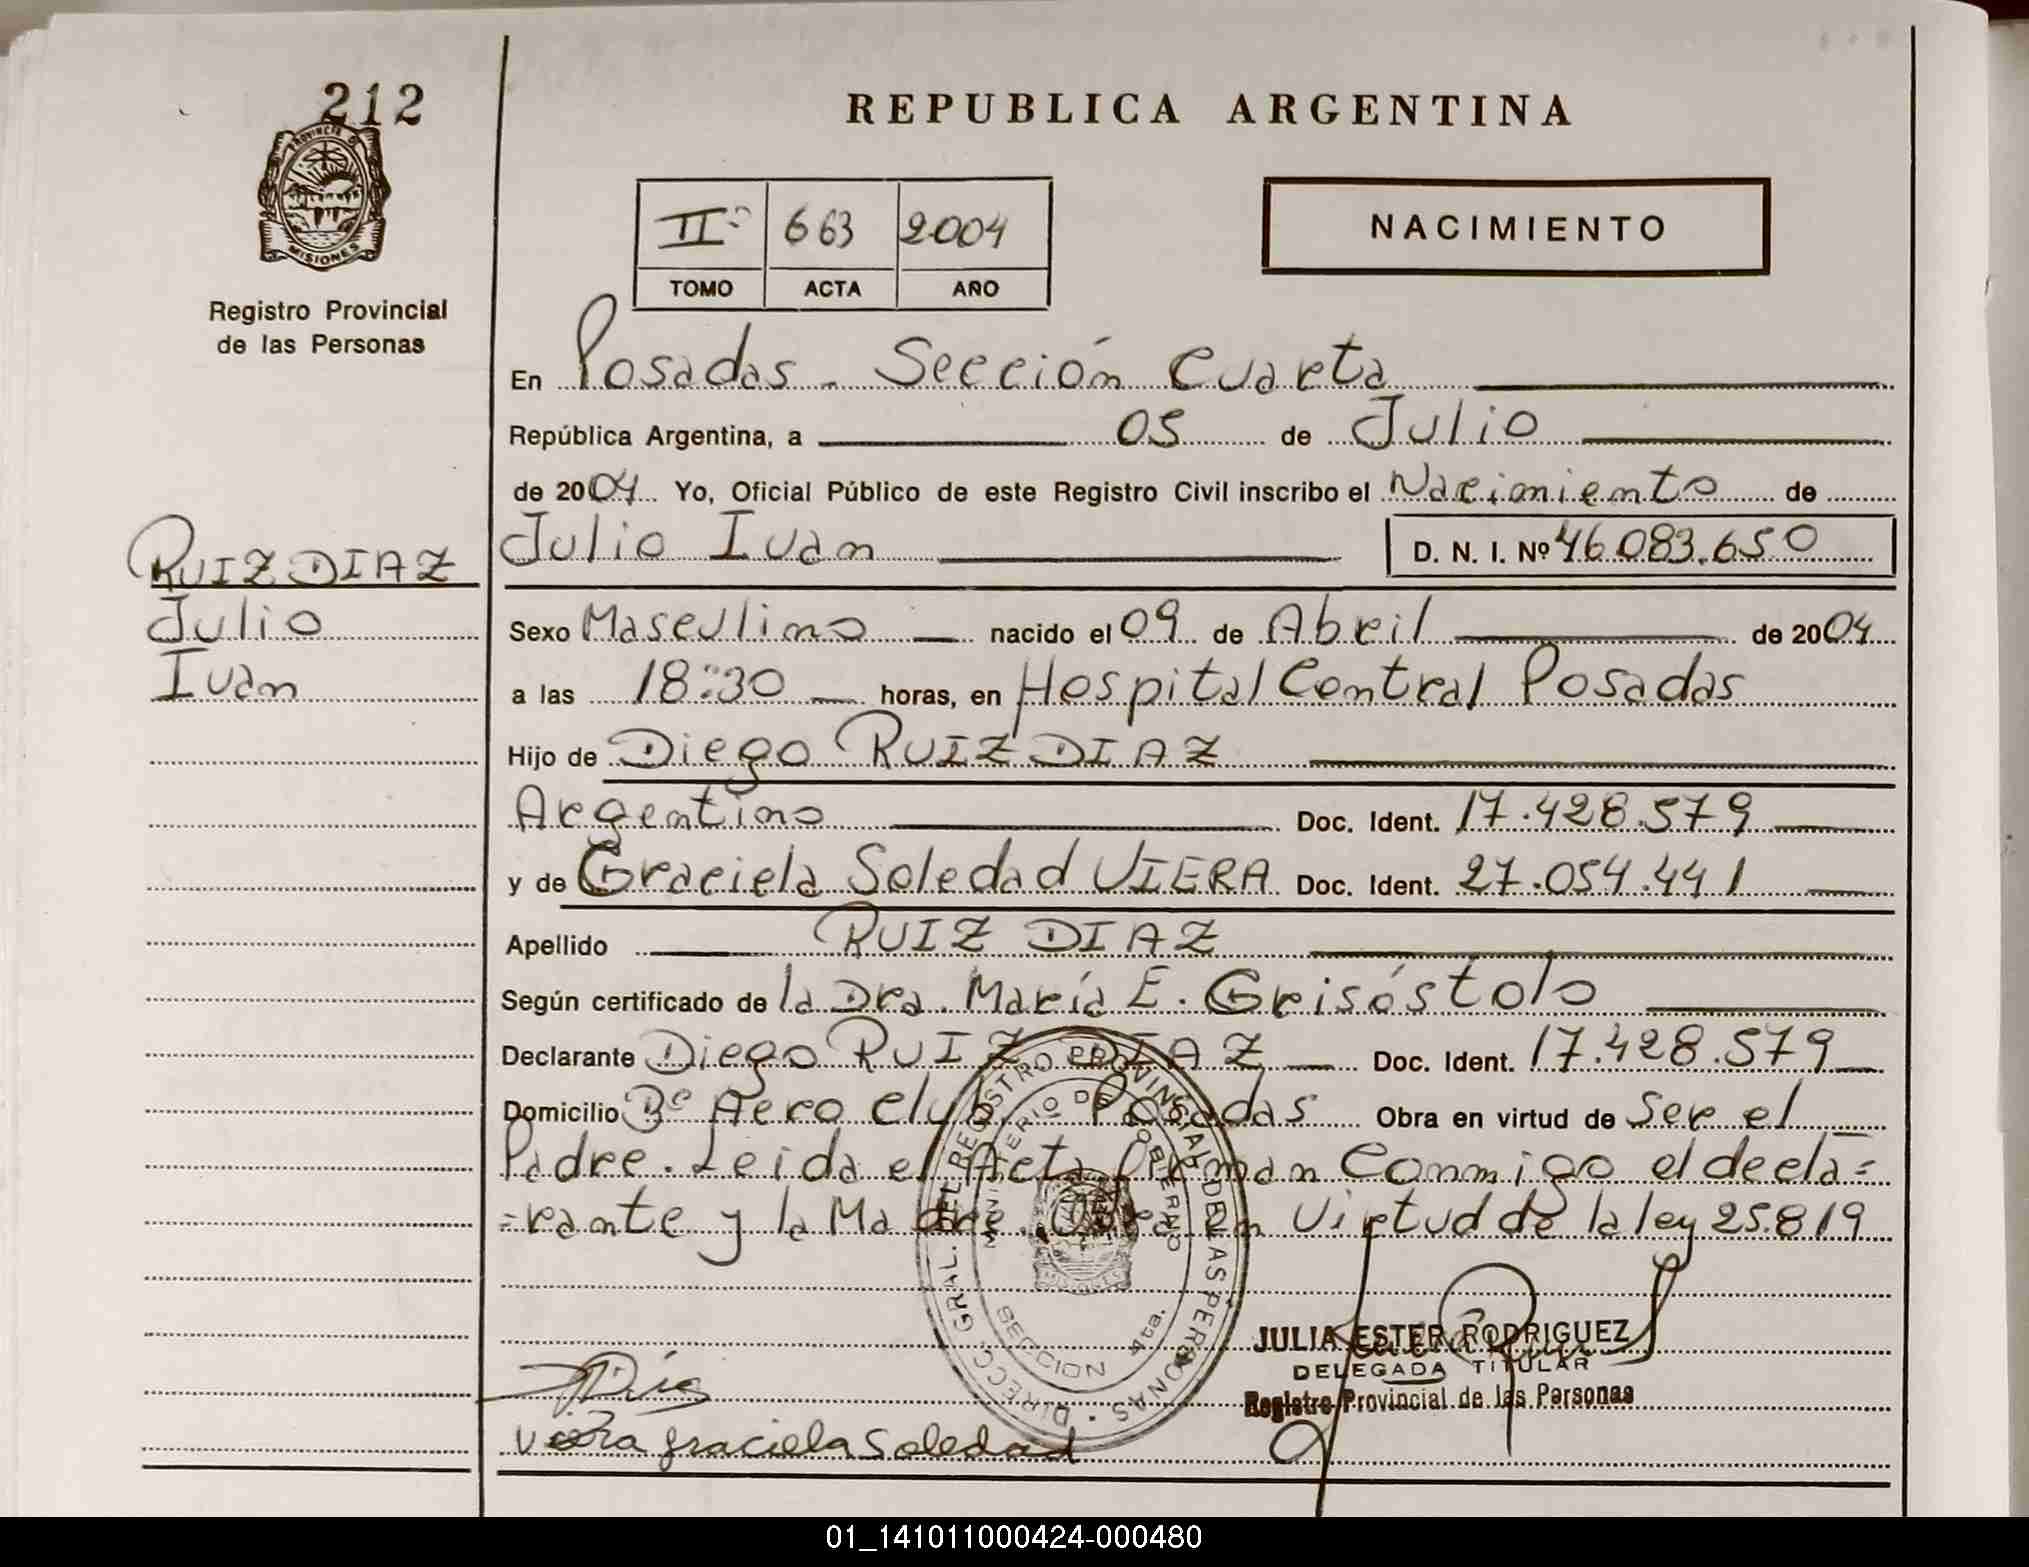 212
REPUBLICA ARGENTINA
PROVINCIA DE
MISIONES
Registro Provincial
de las Personas
IIº 663 2004
TOMO ACTA AÑO
NACIMIENTO
En Posadas - Sección Cuarta
República Argentina, a 05 de Julio
de 2004 Yo, Oficial Público de este Registro Civil inscribo el Nacimiento de
RUIZ DIAZ
Julio
Ivan
Julio Ivan D. N. I. Nº 46.083.650
Sexo Masculino nacido el 09 de Abril de 2004
a las 18:30 horas, en Hospital Central Posadas
Hijo de Diego RUIZ DIAZ
Argentino Doc. Ident. 17.428.579
y de Graciela Soledad VIERA Doc. Ident. 27.054.441
Apellido RUIZ DIAZ
Según certificado de la Dra. María E. Grisóstolo
Declarante Diego RUIZ DIAZ Doc. Ident. 17.428.579
Domicilio Bº Aero Club Posadas Obra en virtud de Ser el
Padre. Leida el Acta Firman Conmigo el decla=
=rante y la Madre. Obra en Virtud de la ley 25.819
DIRECC. GRAL. DEL REGISTRO PROVINCIAL DE LAS PERSONAS
MINISTERIO DE GOBIERNO
SECCION 4ta.
JULIA ESTER RODRIGUEZ
DELEGADA TITULAR
Registro Provincial de las Personas
Viera Graciela Soledad
01_141011000424-000480